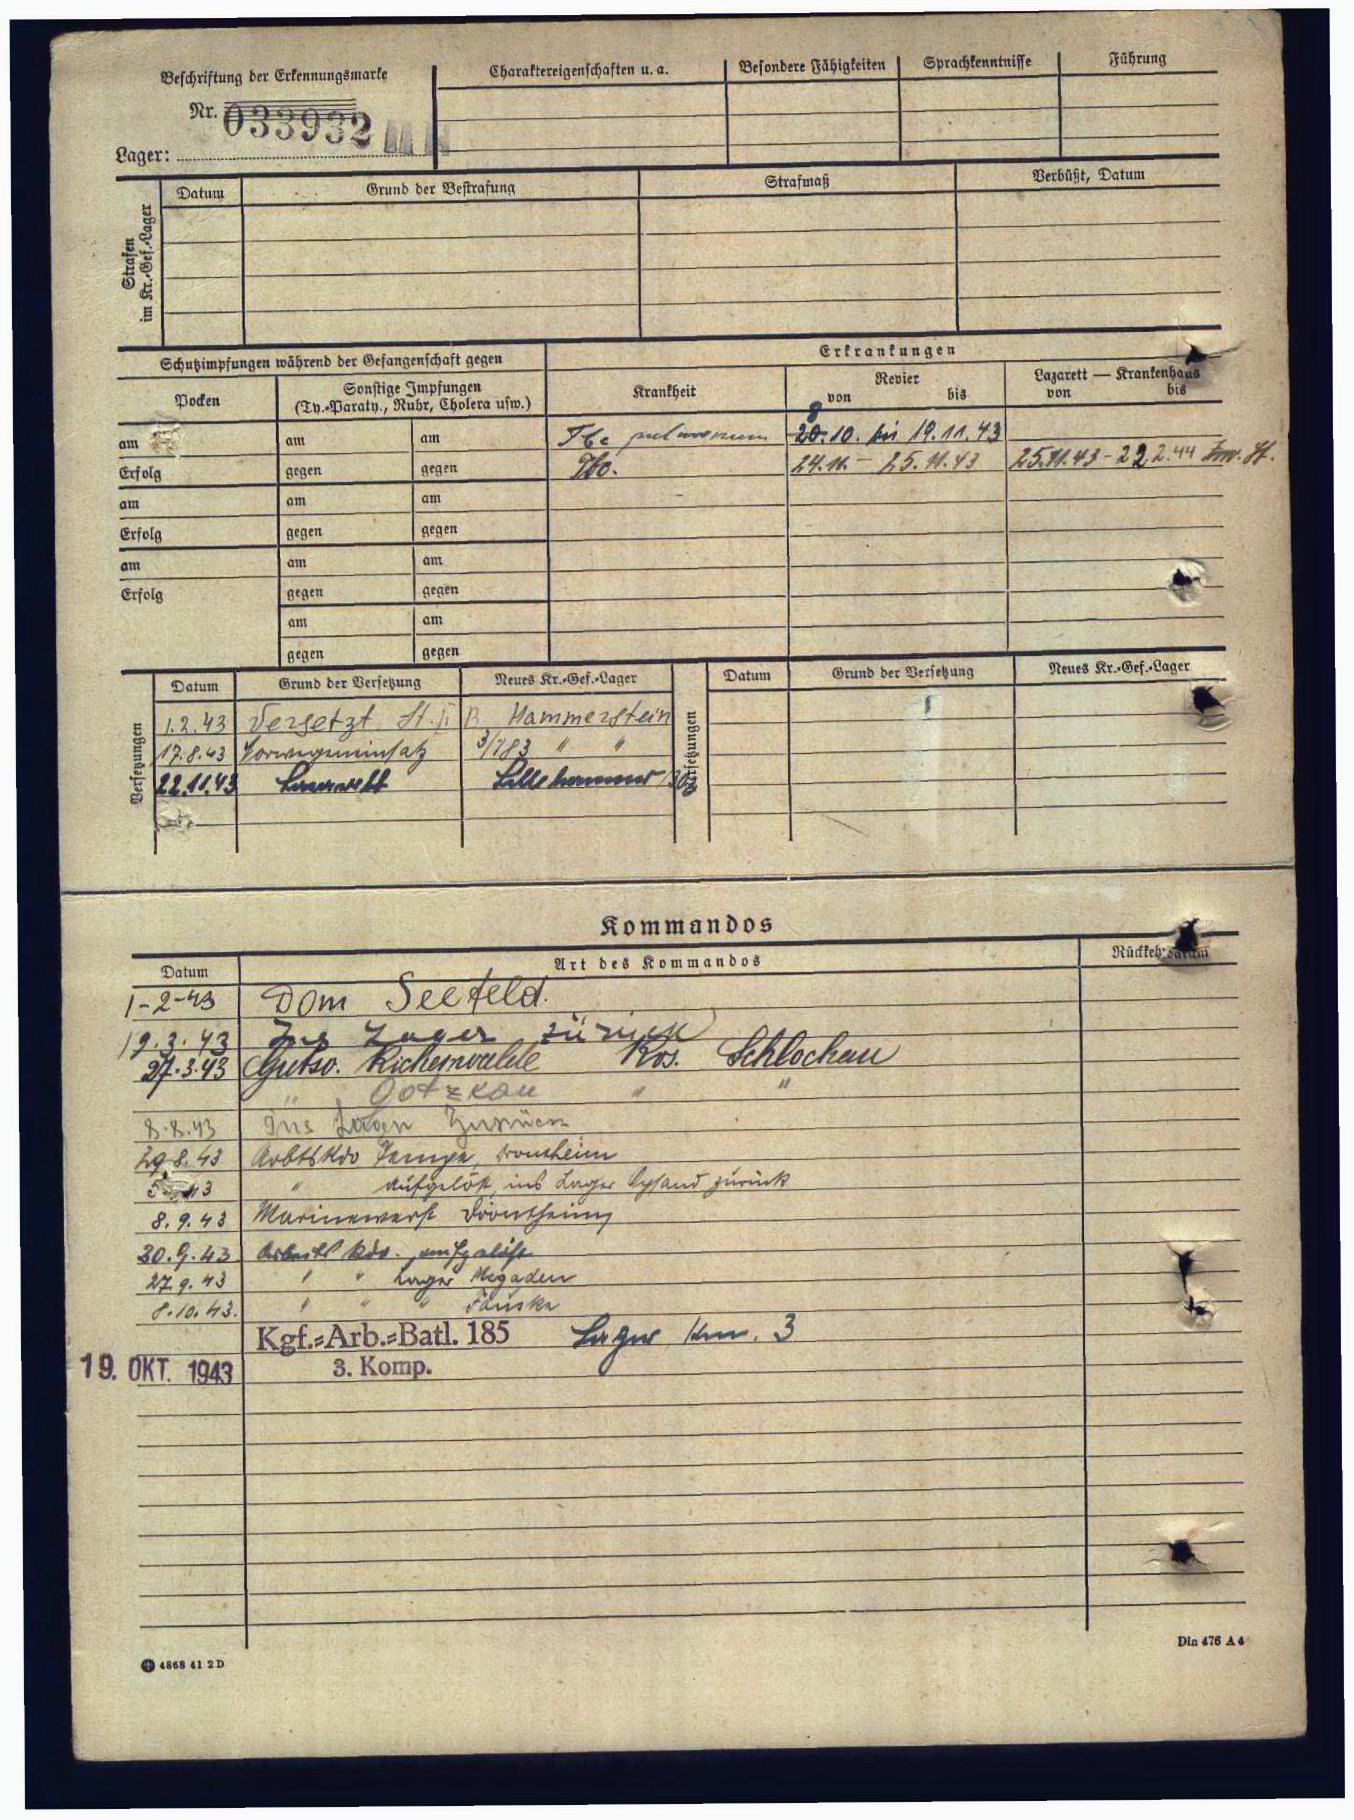 Beschriftung der Erkennungsmarke
Nr. 033932
Lager:
Charaktereigenschaften u. a.
Besondere Fähigkeiten
Sprachkenntnisse
Führung
Strafen im Kr.-Gef.-Lager
Datum
Grund der Bestrafung
Strafmaß
Verbüßt, Datum
Schutzimpfungen während der Gefangenschaft gegen
Erkrankungen
Pocken
Sonstige Impfungen
(Ty.-Paraty., Ruhr, Cholera usw.)
Krankheit
Revier
von bis
Lazarett — Krankenhaus
von bis
am am am
Tbc pulmonum 20.10. bis 19.11.43
8
Erfolg gegen gegen
Tbc. 24.11. - 25.11.43 25.11.43 - 22.2.44
am am am
Erfolg gegen gegen
am am am
Erfolg gegen gegen
am am
gegen gegen
Versetzungen
Datum Grund der Versetzung Neues Kr.-Gef.-Lager
1.2.43 Versetzt St. II B Hammerstein
17.8.43 Norwegeneinsatz 3/183 " "
22.11.43 Lazarett Lillehammer
Versetzungen
Datum Grund der Versetzung Neues Kr.-Gef.-Lager
Kommandos
Datum Art des Kommandos Rückkehrdatum
1-2-43 Dom Seefeld.
19.3.43 Ins Lager zurück
27.3.43 Gutsv. Richenwalde Krs. Schlochau
" Gotzkau " "
8.8.43 Ins Lager Zurück
29.8.43 Arbtskdo Drontheim
" aufgelöst, ins Lager Oysand zurück
8.9.43 Marinewerft Drontheim
20.9.43 Arbeits Kdo. aufgelöst
27.9.43 " " Lager Megaden
8.10.43. " " " Fauske
Kgf.=Arb.=Batl. 185 Lager Km. 3
19. OKT. 1943 3. Komp.
4868 41 2D
Din 476 A 4